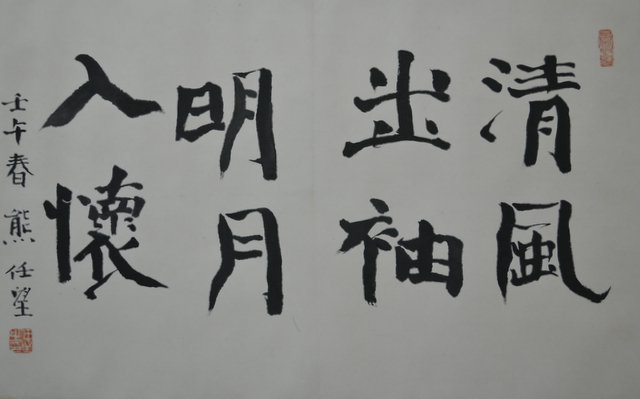 清風
出袖
明月
入懷
壬午春熊任望